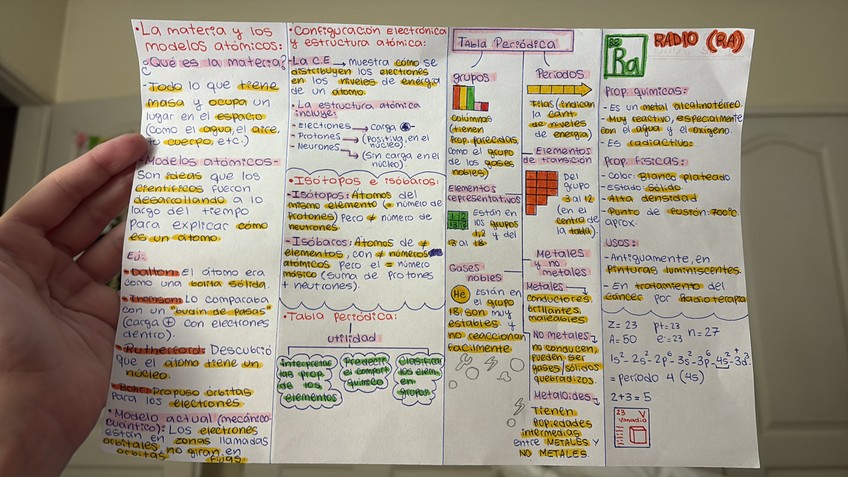 •La materia y los
modelos atómicos:
¿Qué es la materia?
-Todo lo que tiene
masa y ocupa un
lugar en el espacio
(Como el agua, el aire,
tu cuerpo, etc.)
-Modelos atómicos-
Son ideas que los
científicos fueron
desarrollando a lo
largo del tiempo
para explicar cómo
es un átomo.
EJ:
-Dalton: El átomo era
como una bolita sólida.
-Thomson: Lo comparaba
con un "budín de pasas"
(carga + con electrones
dentro).
-Rutherford: Descubrió
que el átomo tiene un
núcleo.
-Bohr: Propuso órbitas
para los electrones
•Modelo actual (mecánico-
cuántico): Los electrones
están en zonas llamadas
orbitales, no giran en
órbitas fijas
•Configuración Electrónica
y estructura atómica:
-La C.E → muestra cómo se
distribuyen los electrones
en los niveles de energía
de un átomo.
•La estructura atómica
incluye:
-Electrones → carga -
-Protones → (Positiva, en el
núcleo)
-Neutrones → (Sin carga en el
núcleo)
•Isótopos e isóbaros:
-Isótopos: Átomos del
mismo elemento (= número de
Protones) pero ≠ número de
neutrones
-Isóbaros: Átomos de ≠
elementos, con ≠ números
atómicos pero el = número
másico (suma de protones
+ neutrones).
•Tabla periódica:
utilidad
interpretar
las prop.
de los
elementos
Predecir
el comport.
químico
Clasificar
los elem.
en
grupos
Tabla Periódica
grupos
columnas
(tienen
prop. parecidas
como el grupo
de los gases
nobles)
Elementos
representativos
Están en
los grupos
1, 2 y del
13 al 18.
Gases
nobles
He
Están en
el grupo
18. son muy
estables y
no reaccionan
facilmente
Períodos
filas (indican
la cant.
de niveles
de energía)
Elementos
de transición
Del
grupo
3 al 12
(en el
centro de
la tabla).
Metales
y no
metales
Metales
conductores,
brillantes,
maleables
No metales
no conducen,
pueden ser
gases/sólidos
quebradizos.
Metaloides
Tienen
propiedades
intermedias
entre METALES Y
NO METALES.
88
Ra
RADIO (RA)
Prop. químicas:
-Es un metal alcalinotérreo.
-Muy reactivo, especialmente
con el agua y el oxígeno.
-Es radiactivo.
Prop. físicas:
-Color: Blanco plateado
-Estado: sólido
-Alta densidad
-Punto de fusión: 700°C
aprox.
USOS:
-Antiguamente, en
pinturas luminiscentes.
-En tratamiento del
cáncer por Radioterapia
Z= 23 p+= 23 n= 27
A= 50 e-= 23
1s²-2s²-2p⁶-3s²-3p⁶-4s²-3d³
= periodo 4 (4s)
2+3=5
23 V
Vanadio